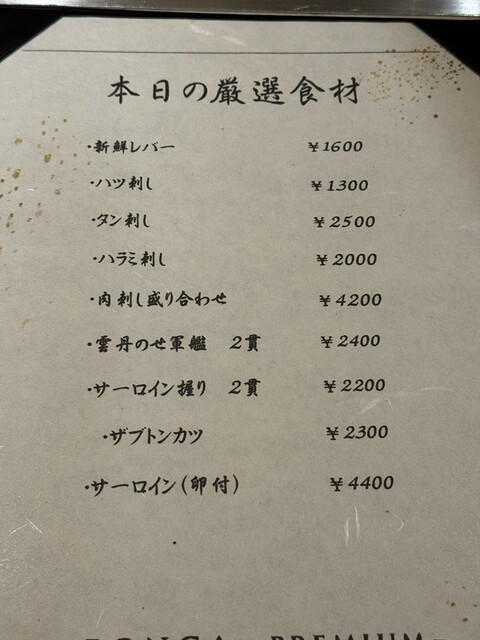 本日の厳選食材
・新鮮レバー ¥1600
・ハツ刺し ¥1300
・タン刺し ¥2500
・ハラミ刺し ¥2000
・肉刺し盛り合わせ ¥4200
・雲丹のせ軍艦 2貫 ¥2400
・サーロイン握り 2貫 ¥2200
・ザブトンカツ ¥2300
・サーロイン(卵付) ¥4400
PREMIUM